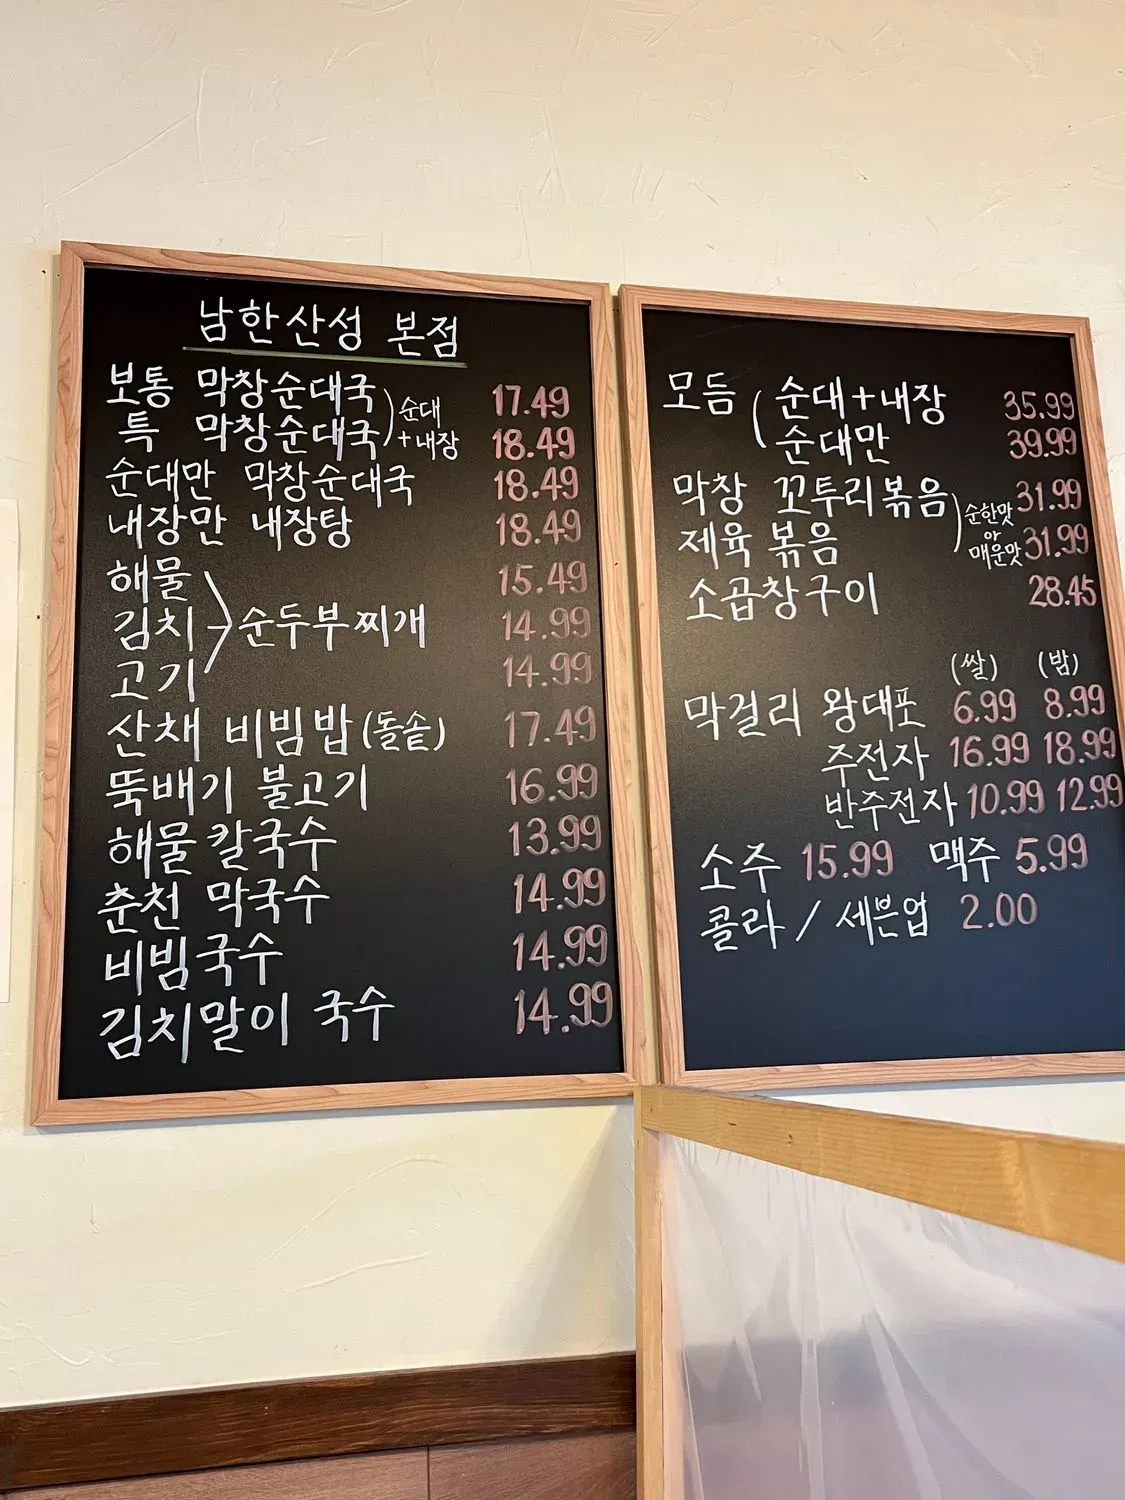 남한산성 본점
보통 막창순대국 17.49
특 막창순대국 18.49
순대
+내장
순대만 막창순대국 18.49
내장만 내장탕 18.49
해물 15.49
김치 순두부찌개 14.99
고기 14.99
산채 비빔밥 (돌솥) 17.49
뚝배기 불고기 16.99
해물 칼국수 13.99
춘천 막국수 14.99
비빔국수 14.99
김치말이 국수 14.99
모듬 (순대+내장 35.99
순대만 39.99
막창 꼬투리볶음 31.99
제육 볶음 31.99
순한맛
or
매운맛
소곱창구이 28.45
(쌀) (밤)
막걸리 왕대포 6.99 8.99
주전자 16.99 18.99
반주전자 10.99 12.99
소주 15.99 맥주 5.99
콜라 / 세븐업 2.00